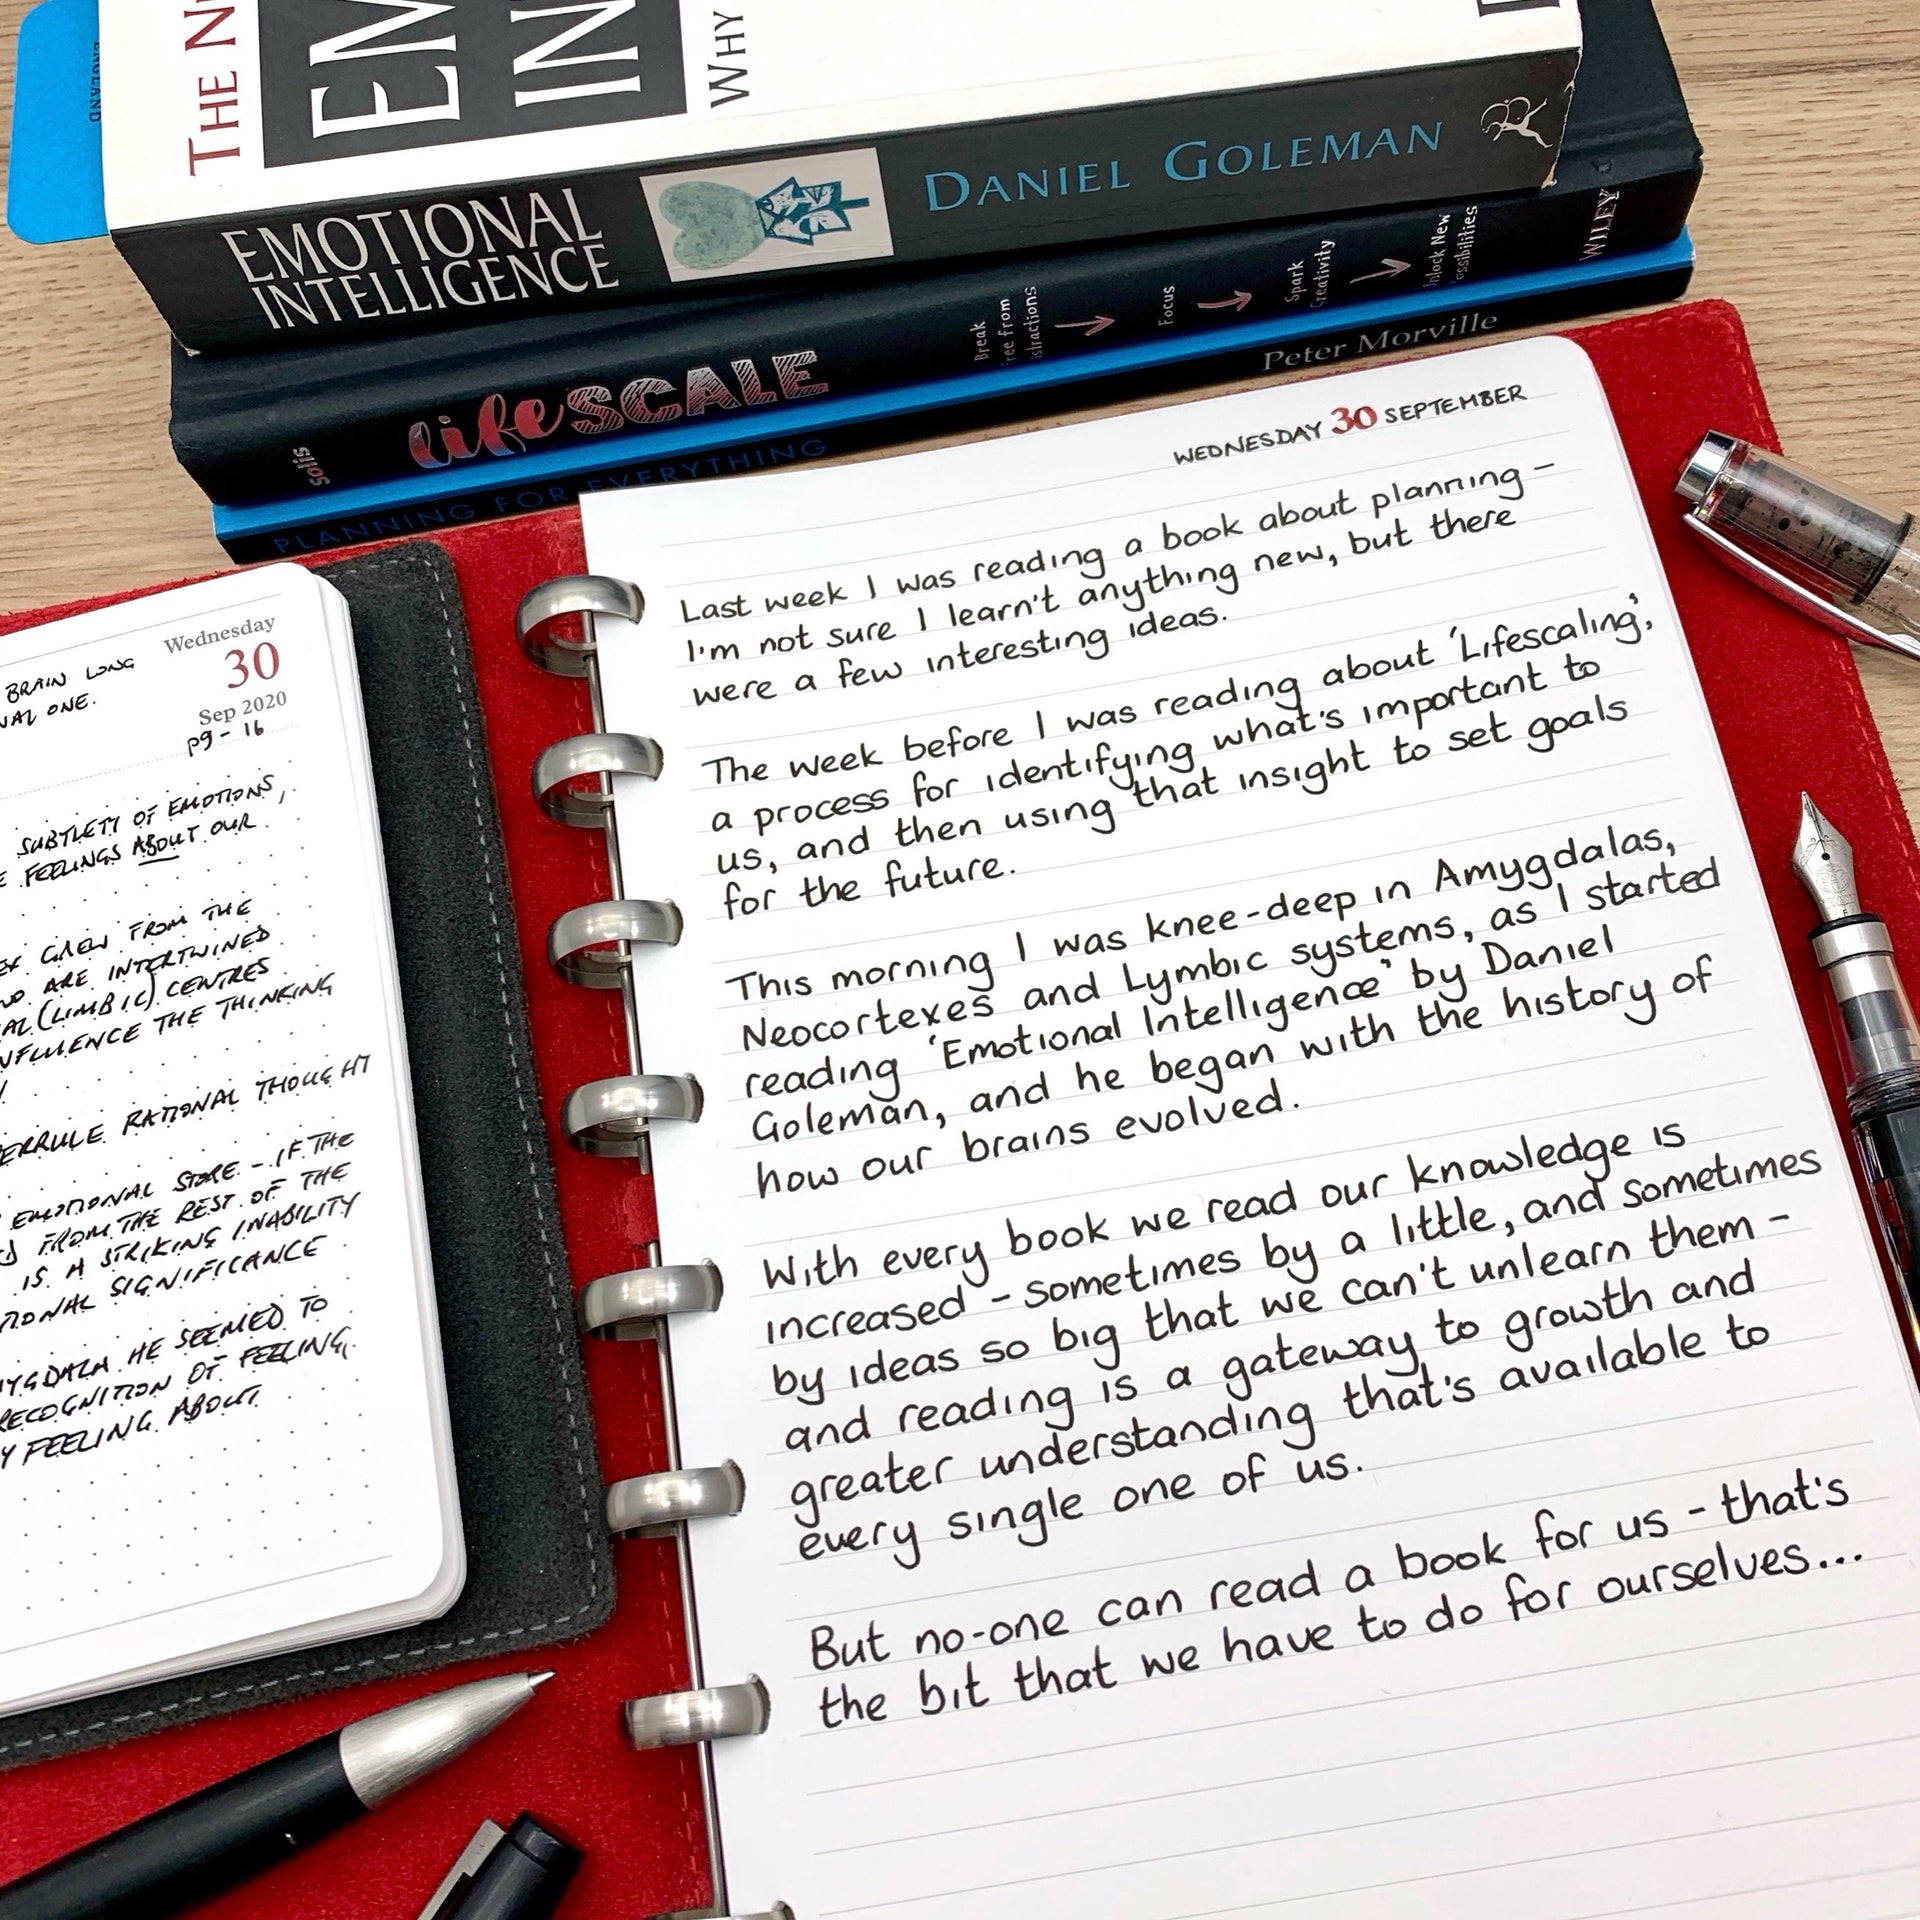 ENGLAND
THE N
EM
IN
WHY
EMOTIONAL
INTELLIGENCE
DANIEL GOLEMAN
solis
lifeSCALE
Break
ree from
istractions
Focus
Spark
Creativity
Unlock New
Possibilities
WILEY
PLANNING FOR EVERYTHING
Peter Morville
BRAIN LONG
NAL ONE.
Wednesday
30
Sep 2020
pg - 16
SUBTLETY OF EMOTIONS,
E FEELINGS ABOUT OUR
EX GREW FROM THE
ND ARE INTERTWINED
AL (LIMBIC) CENTRES
NFLUENCE THE THINKING
ERRULE RATIONAL THOUGHT
EMOTIONAL STORE - IF THE
D FROM THE REST OF THE
IS A STRIKING INABILITY
TIONAL SIGNIFICANCE
YGDALA HE SEEMED TO
RECOGNITION OF FEELING,
Y FEELING ABOUT
WEDNESDAY 30 SEPTEMBER
Last week I was reading a book about planning -
I'm not sure I learn't anything new, but there
were a few interesting ideas.
The week before I was reading about 'Lifescaling',
a process for identifying what's important to
us, and then using that insight to set goals
for the future.
This morning I was knee-deep in Amygdalas,
Neocortexes and Lymbic systems, as I started
reading 'Emotional Intelligence' by Daniel
Goleman, and he began with the history of
how our brains evolved.
With every book we read our knowledge is
increased - sometimes by a little, and sometimes
by ideas so big that we can't unlearn them -
and reading is a gateway to growth and
greater understanding that's available to
every single one of us.
But no-one can read a book for us - that's
the bit that we have to do for ourselves...